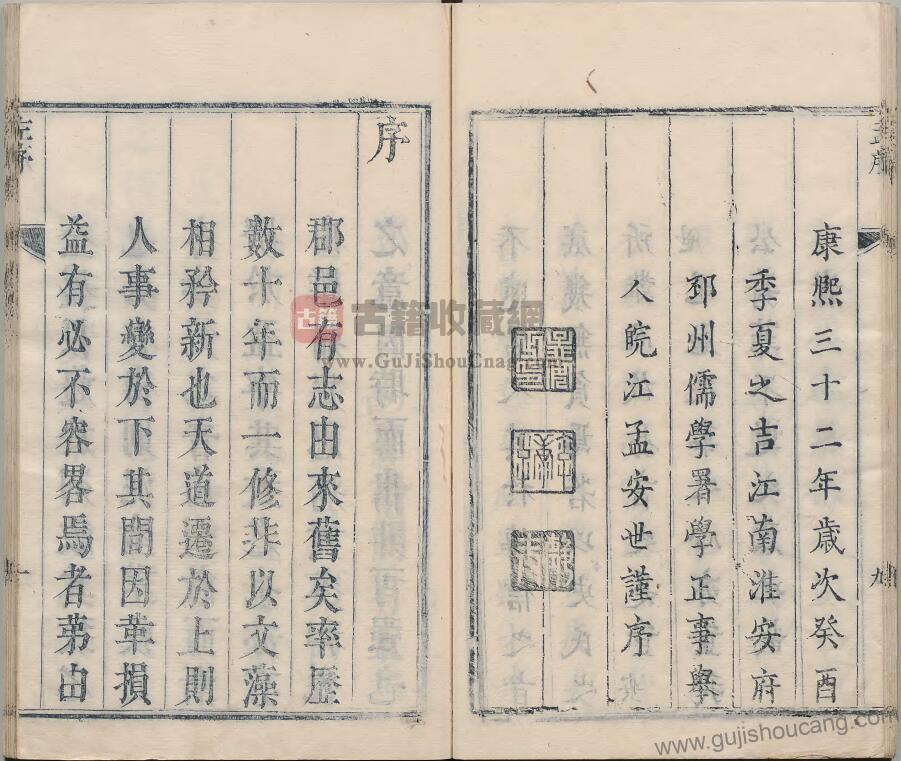 康熙三十二年歲次癸酉
季夏之吉江南淮安府
邳州儒學署學正事舉
人皖江孟安世謹序
九
序
郡邑有志由來舊矣率歷
數十年而一修非以文藻
相矜新也天道遷於上則
人事變於下其間因革損
益有必不容畧焉者苐由
一
古籍
古籍收藏網
www.GuJiShouCang.com
www.gujishoucang.com